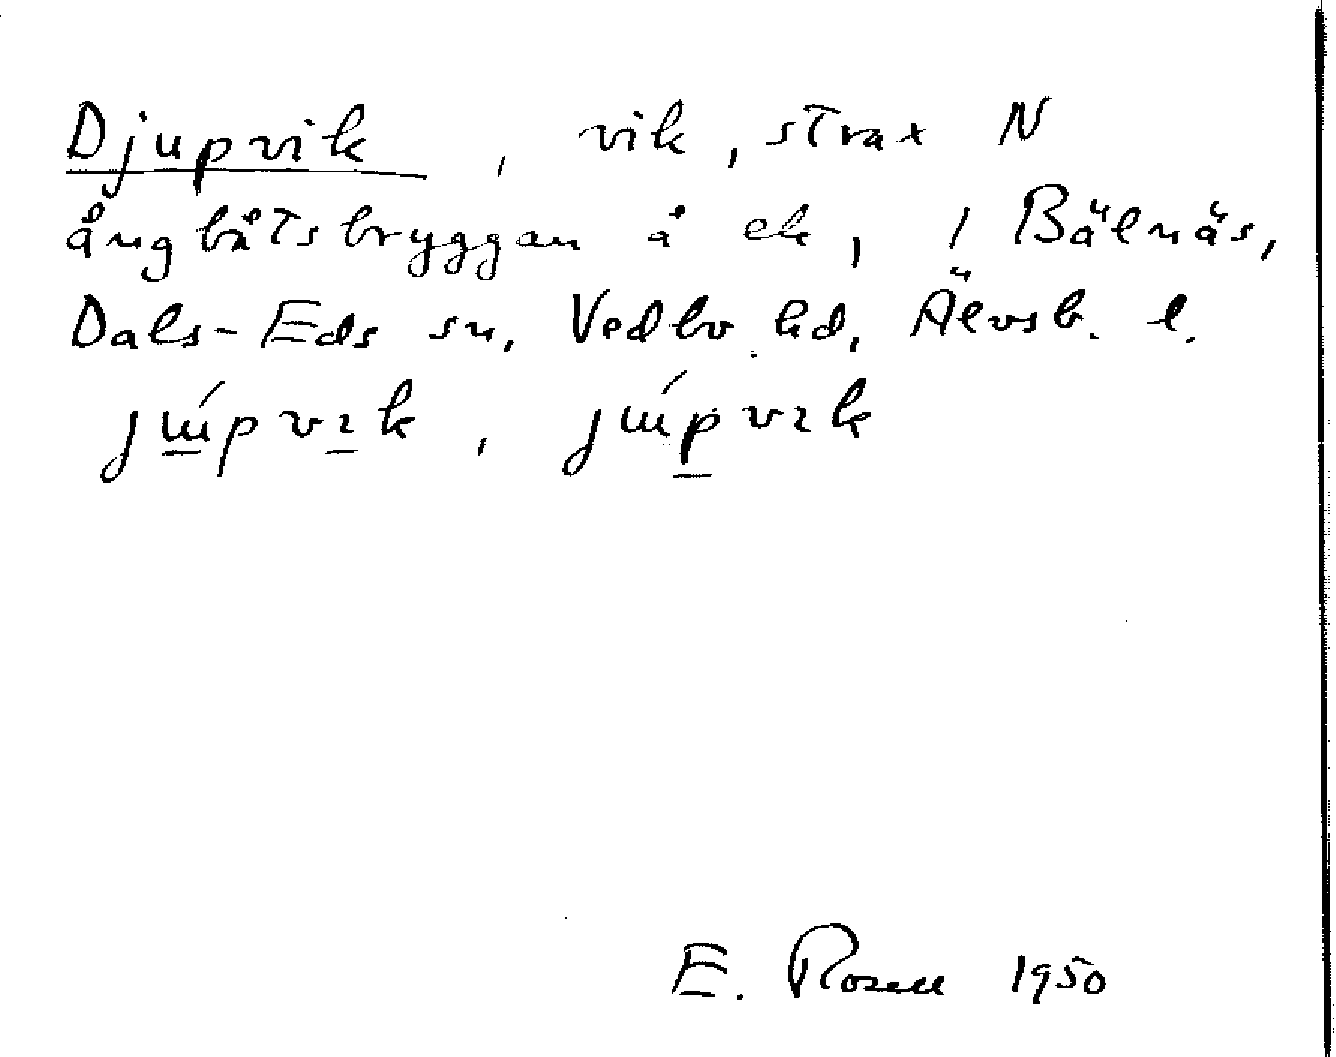 Djupvik , vik , strax N
ångbåtsbryggan å ek, i Bälnäs,
Dals-Eds sn, Vedbo hd, Älvsb. l.
E. Rosell 1950